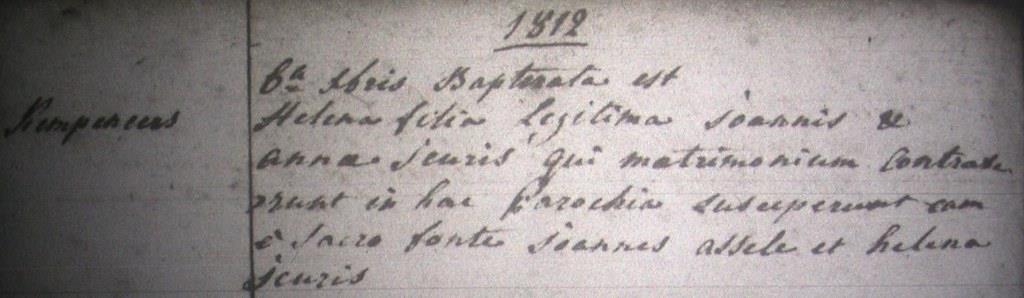 1812
6a Xbris Baptizata est
Kempeneers
Helena filia legitima Joannis &
annae Jeuris qui matrimonium contraxe
runt in hac Parochia susceperunt eam
e sacro fonte Joannes assele et helena
Jeuris